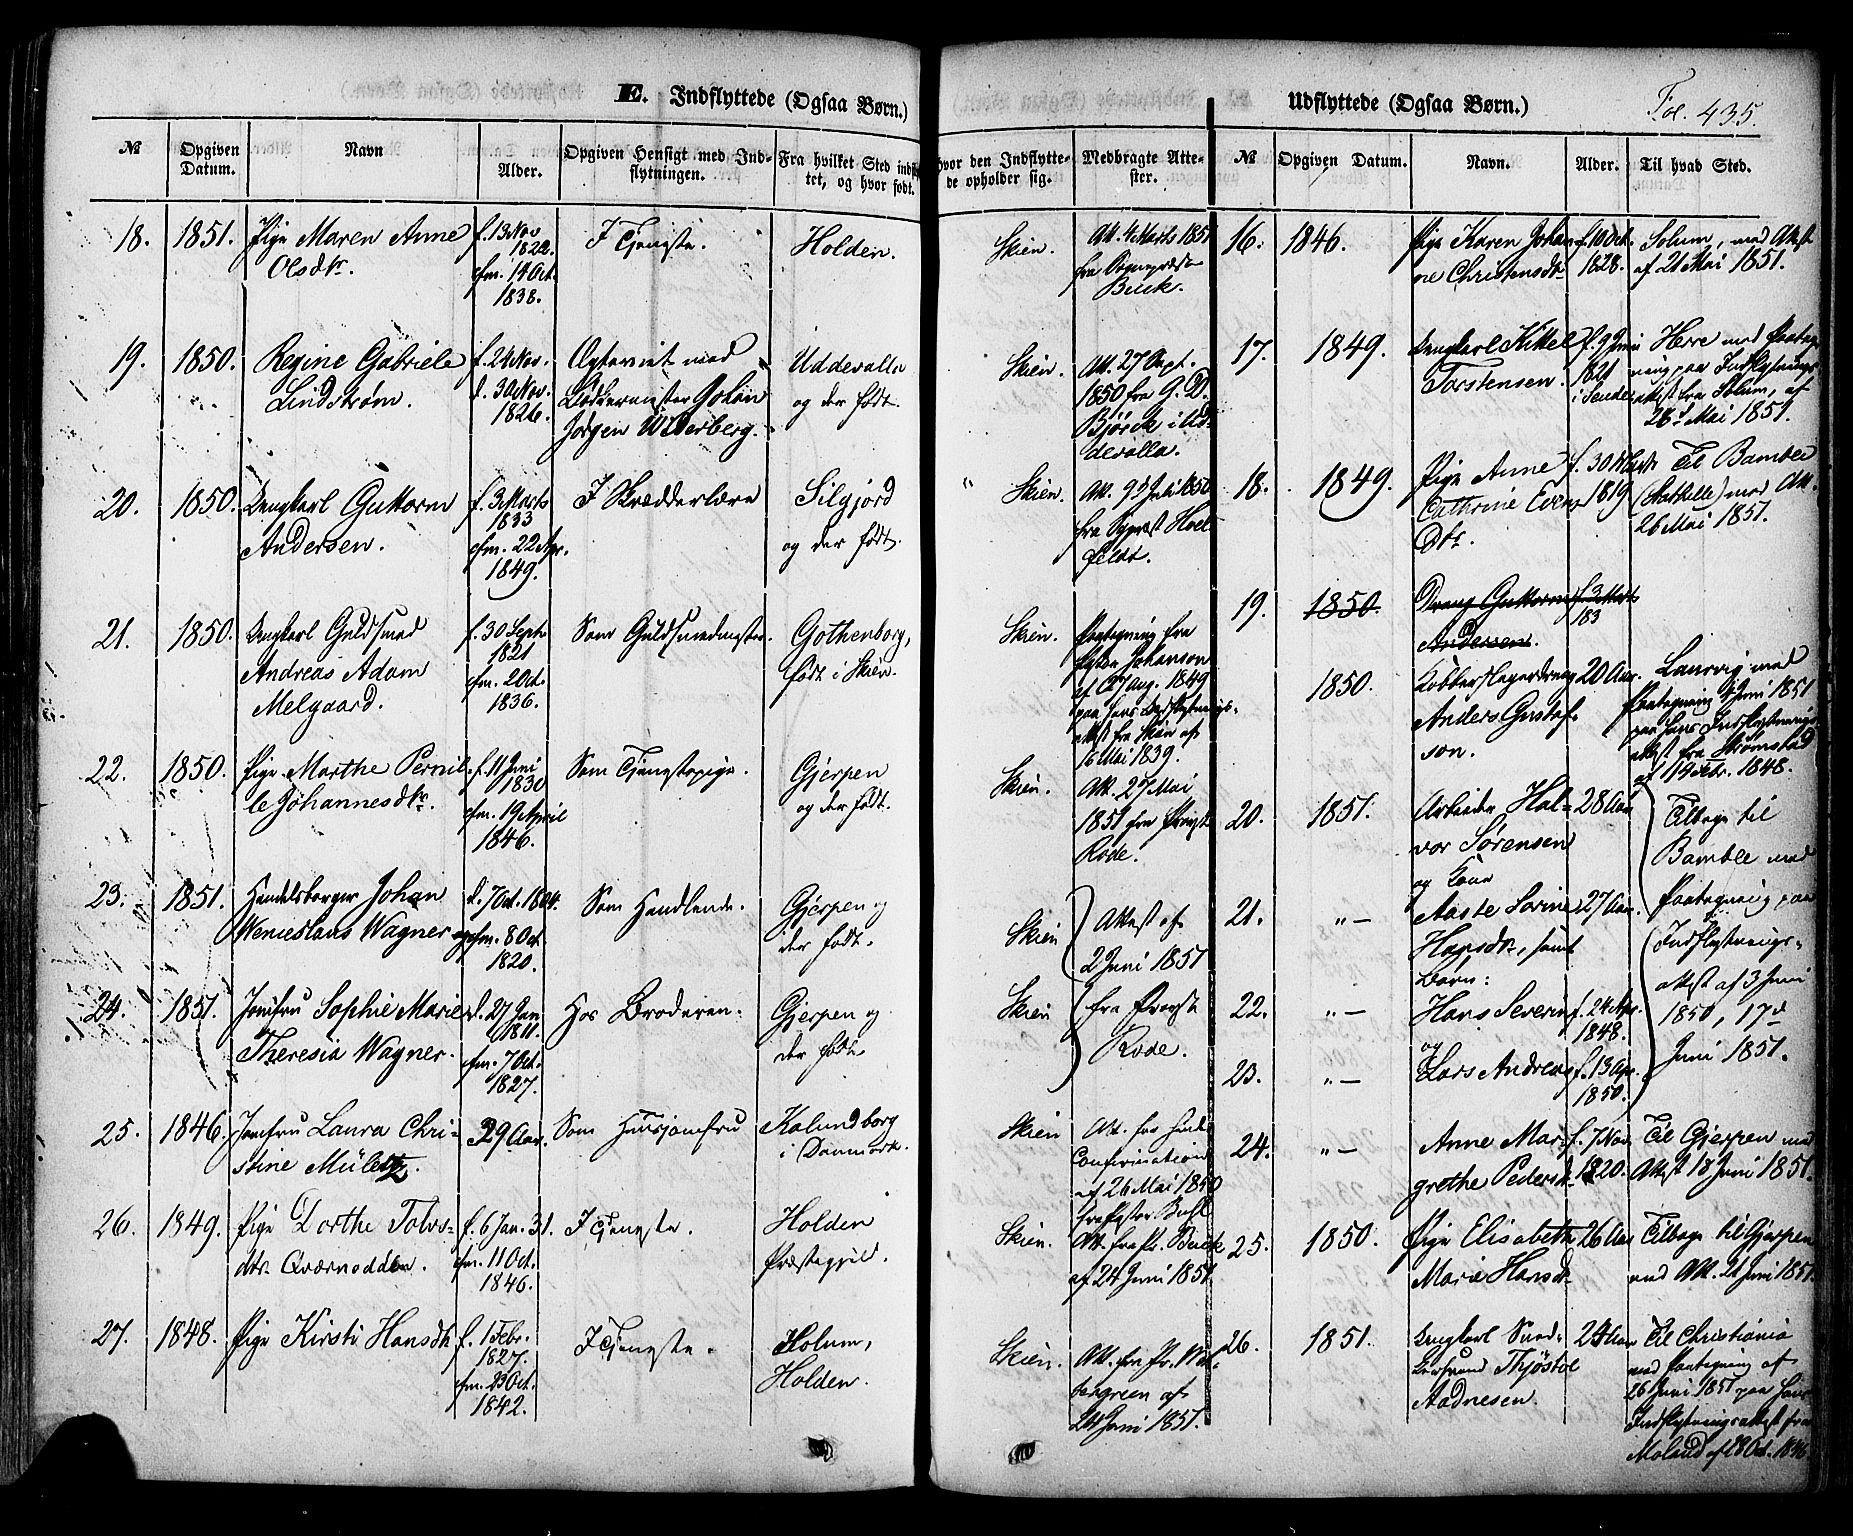 E. Indflyttede (Ogsaa Børn.)
№
Opgiven
Datum.
Navn
Alder.
Opgiven Hensigt med Ind-
flytningen.
Fra hvilket Sted indfly
tet, og hvor født.
hvor den Indflytte-
de opholder sig.
Medbragte Atte-
ster.
18. 1851. Pige Maren Anne
Olsdtr.
f. 13 Nov
1822
cfm. 14 Oct.
1838.
I Tjeneste.
Holden.
Skien.
Att. 4 Marts 1851
fra Sogneprest
Buck.
19. 1850. Regine Gabriele
Lindstrøm.
f. 24 Nov.
d. 30 Nov.
1826.
Ægteviet med
Johan
Jørgen Widerberg.
Uddevalla
og der født.
Skien.
Att. 27 Sept.
1850 fra G. D.
Bjørck i Ud-
devalla.
20. 1850. Ungkarl Guttorm
Andersen.
f. 3 Marts
1833
cfm. 22 Apr.
1849.
I Skrædderlære
Silgjord
og der født.
Skien.
Att. 1850
fra Sognprest
21. 1850. Ungkarl Guldsmed
Andreas Adam
Melgaard.
f. 30 Septr
1821
cfm. 2 Oct.
1836.
Som Guldsmedmester.
Gothenborg,
født i Skien.
Skien.
Paategning fra
Johanson
af 27 Aug. 1849
paa hans Indflytnings-
attest fra Skien af
16 Mai 1839.
22. 1850. Pige Marthe Pernil-
le Johannesdtr.
f. 11 Juni
1830
cfm. 19 April
1846.
Som Tjenestepige.
Gjerpen
og der født.
Skien.
Att. 27 Mai
1851 fra Provst
Rode.
23. 1851. Handelsborger Johan
Wencieslaus Wagner og
d. 7 Oct. 1804.
cfm. 8 Oct.
1820.
Som Handlende.
Gjerpen og
der født.
Skien
Attest af
2 Juni 1851
24. 1851. Jomfru Sophie Marie
Theresia Wagner.
d. 27 Jan
1811.
cfm. 7 Oct.
1827.
Hos Broderen.
Gjerpen og
der født.
Skien
fra Provst
Rode.
25. 1846. Jomfru Laura Chri-
stine
29 Aar.
Som Husjomfru
Kalundborg
i Danmark.
Skien
Att. for hendes
Confirmation
af 26 Mai 1850
fra
26. 1849. Pige Dorthe Tolvs-
dtr. Qværnodden.
f. 6 Jan. 31.
cfm. 11 Oct.
1846.
I Tjeneste.
Holden
Præstegjeld.
Skien.
Att. fra Pr. Buck
af 24 Juni 1851.
27. 1848. Pige Kirsti Hansdtr
f. 1 Febr.
1827.
cfm. 23 Oct.
1842.
I Tjeneste.
Holum,
Holden.
Skien.
Att. fra Pr.
af
24 Juni 1851.
Udflyttede (Ogsaa Børn.)
Fol. 435.
№
Opgiven Datum.
Navn.
Alder.
Til hvad Sted.
16. 1846. Pige Karen Johan-
ne Christensdtr
f. 10 Oct.
1828.
Solum, med Attest
af 21 Mai 1851.
17. 1849. Ungkarl Kittel
Torstensen.
f. 9 Juni
1821
Herre med Paateg-
ning paa Indflytnings-
attest fra Solum, af
26de Mai 1851.
18. 1849. Pige Anne
Cathrine Evens
Dtr.
f. 30 Marts
1819
Til Bamble
(Stathelle) med Att.
26 Mai 1851.
19. 1850. Dreng Guttorm
Andersen.
f. 3 Marts
183
1850. Kobberslagerdreng
Anders Gustaf-
son.
20 Aar.
Laurvig med
Paategning 4 Juni 1851
paa hans Indflytnings-
attest fra Strømstad
af 19 Febr. 1848.
20. 1851. Arbeider Hal-
vor Sørensen
og Kone
28 Aar
Tilbage til
Bamble med
Paategning paa
Indflytnings-
attest af 3 Juni
1850, 17de
Juni 1851.
21. „— Aaste Sorine
Hansdtr, samt
Børn:
27 Aar.
22. „— Hans Severin
og
f. 24 Apr.
1848.
23. „— Lars Andreas
f. 13 Apr.
1850.
24. „— Anne Mar-
grethe Pedersdtr
f. 7 Nov.
1820.
Til Gjerpen med
Attest 18 Juni 1851.
25. 1850. Pige Elisabeth
Marie Hansdtr
26 Aar
Tilbage til Gjerpen
med Att. 21 Juni 1851.
26. 1851. Ungkarl
Thjøstol
Aadnesen.
24 Aar
Til Christiania
med Paategning af
26 Juni 1851 paa hans
Indflytningsattest fra
Moland af 28 Oct. 1846